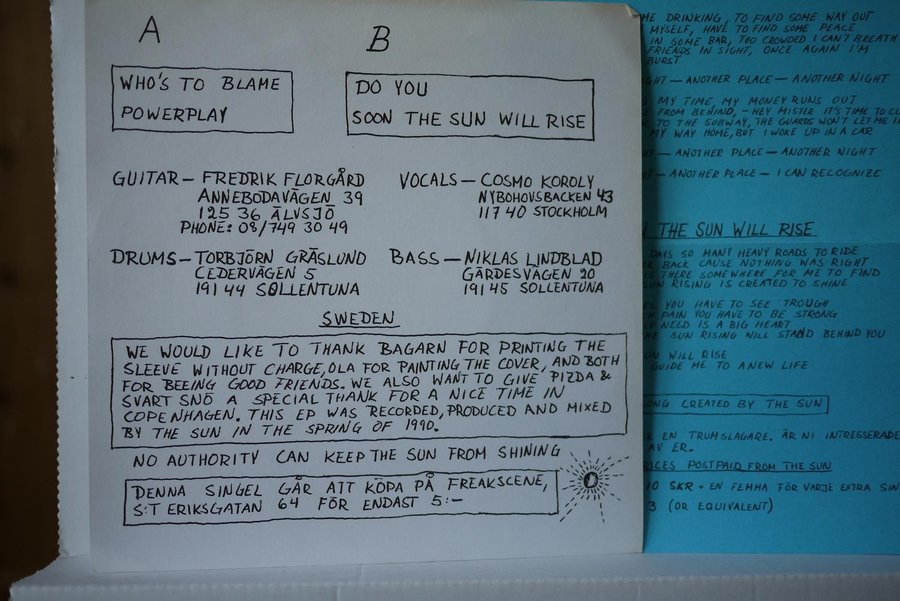 A
B
WHO'S TO BLAME
POWERPLAY
DO YOU
SOON THE SUN WILL RISE
GUITAR — FREDRIK FLORGÅRD
ANNEBODAVÄGEN 39
125 36 ÄLVSJÖ
PHONE: 08/749 30 49
VOCALS — COSMO KOROLY
NYBOHOVSBACKEN 43
117 40 STOCKHOLM
DRUMS — TORBJÖRN GRÄSLUND
CEDERVÄGEN 5
191 44 SOLLENTUNA
BASS — NIKLAS LINDBLAD
GÄRDESVÄGEN 20
191 45 SOLLENTUNA
SWEDEN
WE WOULD LIKE TO THANK BAGARN FOR PRINTING THE
SLEEVE WITHOUT CHARGE, OLA FOR PAINTING THE COVER, AND BOTH
FOR BEEING GOOD FRIENDS. WE ALSO WANT TO GIVE PIZDA &
SVART SNÖ A SPECIAL THANK FOR A NICE TIME IN
COPENHAGEN. THIS EP WAS RECORDED, PRODUCED AND MIXED
BY THE SUN IN THE SPRING OF 1990.
NO AUTHORITY CAN KEEP THE SUN FROM SHINING
DENNA SINGEL GÅR ATT KÖPA PÅ FREAKSCENE,
S:T ERIKSGATAN 64 FÖR ENDAST 5:-
DRINKING, TO FIND SOME WAY OUT
MYSELF, HAVE TO FIND SOME PEACE
IN SOME BAR, TOO CROWDED I CAN'T BREATH
FRIENDS IN SIGHT, ONCE AGAIN I'M
BURST
— ANOTHER PLACE — ANOTHER NIGHT
MY TIME, MY MONEY RUNS OUT
FROM BEHIND, - HEY MISTER IT'S TIME TO
TO THE SUBWAY, THE GUARDS WON'T LET ME
MY WAY HOME, BUT I WOKE UP IN A CAR
— ANOTHER PLACE — ANOTHER NIGHT
— ANOTHER PLACE — I CAN RECOGNIZE
THE SUN WILL RISE
DAYS SO MANY HEAVY ROADS TO RIDE
BACK CAUSE NOTHING WAS RIGHT
THERE SOMEWHERE FOR ME TO FIND
SUN RISING IS CREATED TO SHINE
YOU HAVE TO SEE TROUGH
PAIN YOU HAVE TO BE STRONG
NEED IS A BIG HEART
SUN RISING WILL STAND BEHIND YOU
WILL RISE
GUIDE ME TO A NEW LIFE
CREATED BY THE SUN
EN TRUMSLAGARE. ÄR NI INTRESSERADE
AV ER.
POSTPAID FROM THE SUN
10 SKR + EN FEMMA FÖR VARJE EXTRA
3 (OR EQUIVALENT)